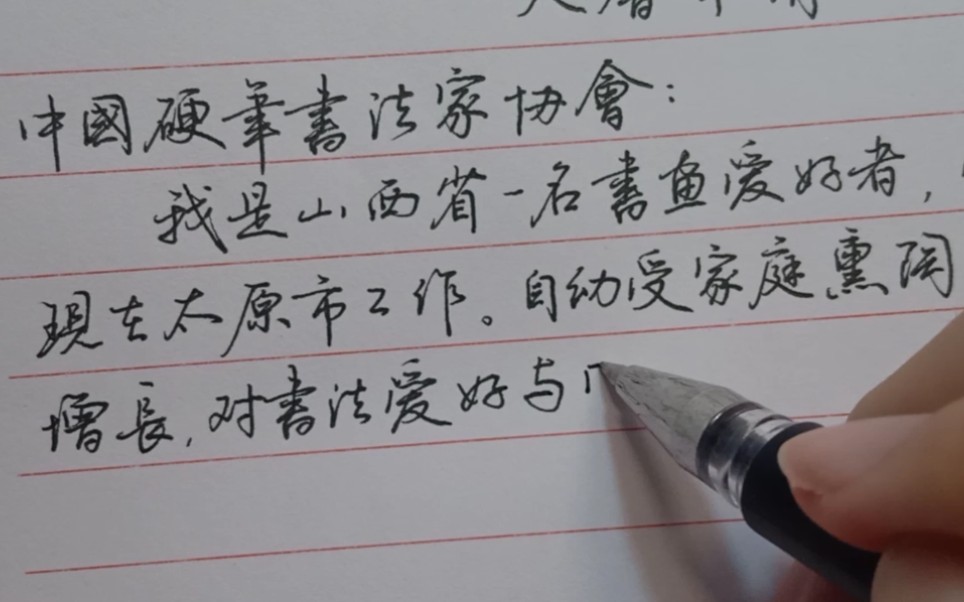 中國硬筆書法家协會：
我是山西省一名書画爱好者，
現在太原市工作。自幼受家庭熏陶
增長，对書法爱好与